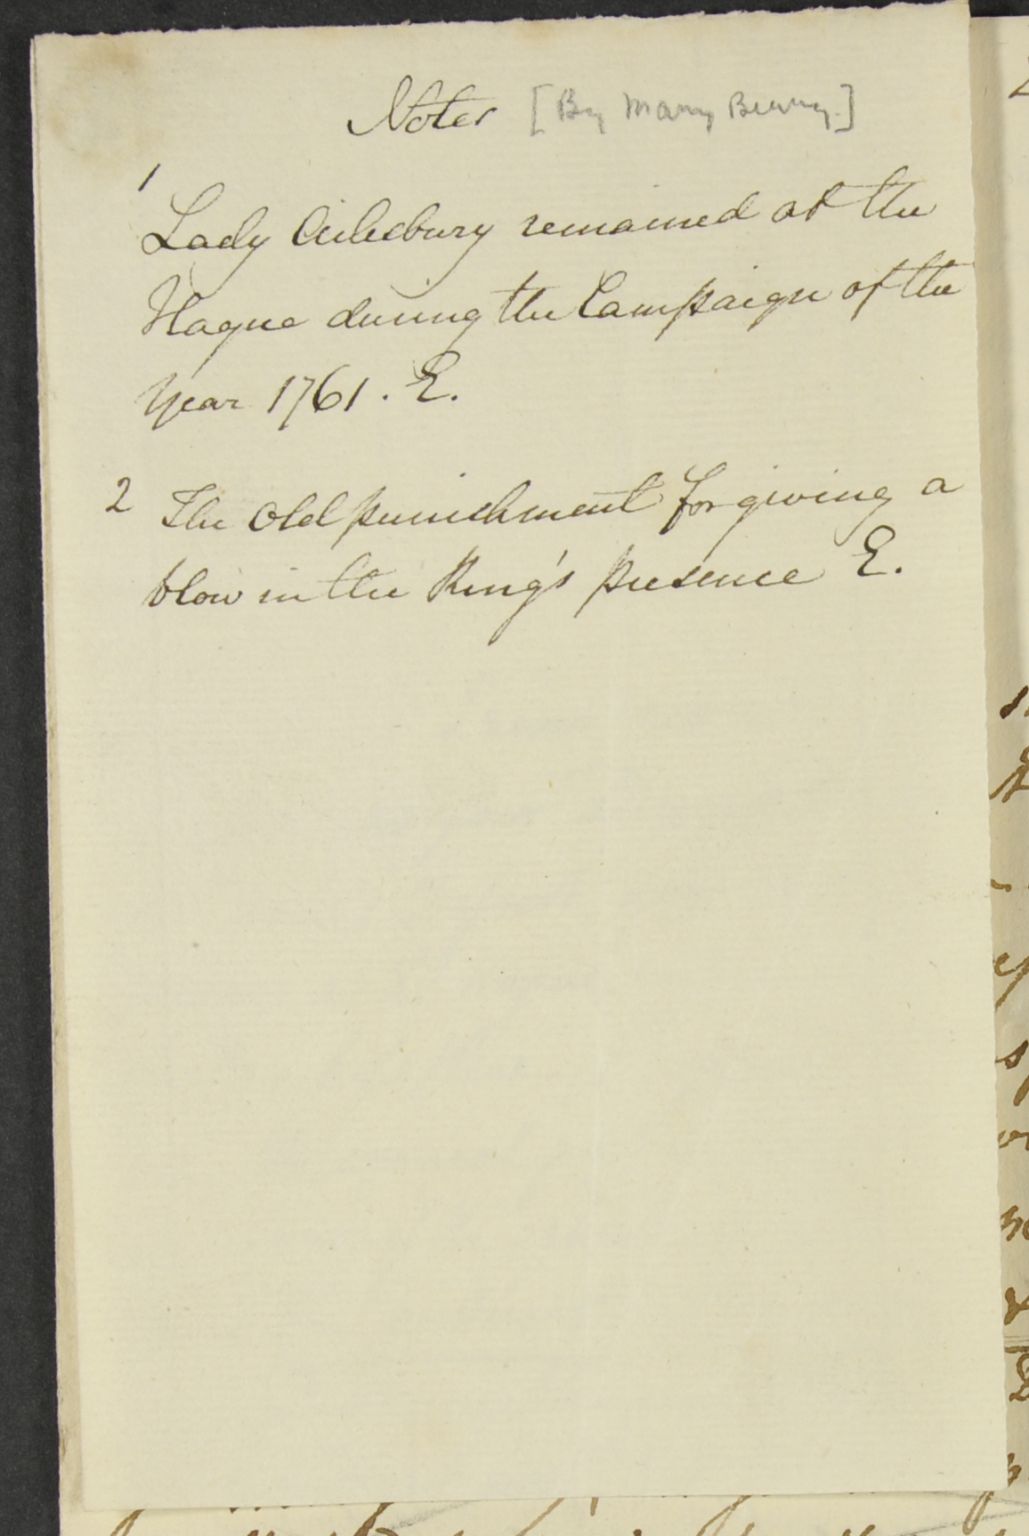 Notes [By Mary Berry.]
1
Lady Ailesbury remained at the
Hague during the Campaign of the
Year 1761. E.
2 The Old punishment for giving a
blow in the King's presence E.